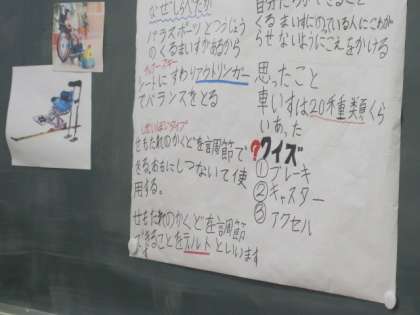 なぜしらべたか
パラスポーツとつうじょう
のくるまいすがあるから
チェアースキー
シートにすわりアウトリンガー
でバランスをとる
せもたれのかくどを調節で
きる。おもにしつないで使
用する。
せもたれのかくどを調節
できることをテルトといいます
くるまいすにのっている人にこわが
らせないようにこえをかける
思ったこと
車いすは20種類くら
いあった
?クイズ
①ブレーキ
②キャスター
③アクセル